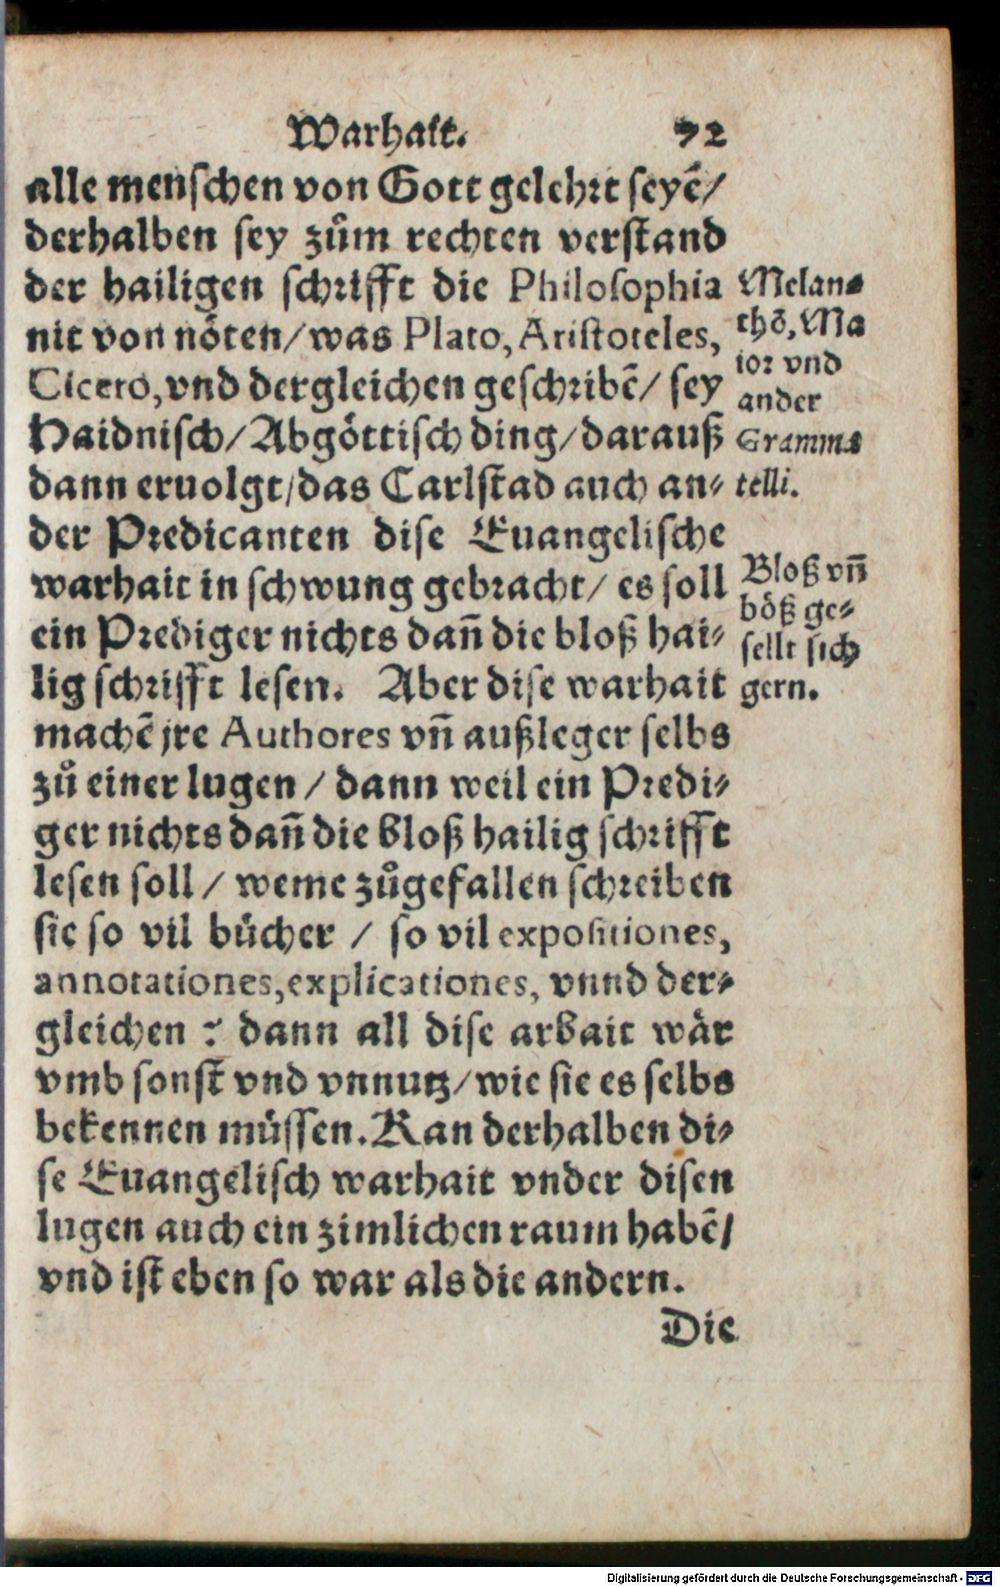 Warhait. 72
alle menschen von Gott gelehrt seyẽ/
derhalben sey zům rechten verstand
der hailigen schrifft die Philosophia
nit von nöten/was Plato, Aristoteles,
Cicero,vnd dergleichen geschribẽ/ sey
Haidnisch/Abgöttisch ding/darauß
dann eruolgt/das Carlstad auch an⸗
der Predicanten dise Euangelische
warhait in schwung gebracht/ es soll
ein Prediger nichts dañ die bloß hai⸗
lig schrifft lesen. Aber dise warhait
machẽ jre Authores vñ außleger selbs
zů einer lugen / dann weil ein Predi⸗
ger nichts dañ die bloß hailig schrifft
lesen soll / weme zůgefallen schreiben
sie so vil bücher / so vil expositiones,
annotationes,explicationes, vnnd der⸗
gleichen ? dann all dise arbait wär
vmb sonst vnd vnnutz/wie sie es selbs
bekennen müssen.Kan derhalben di⸗
se Euangelisch warhait vnder disen
lugen auch ein zimlichen raum habẽ/
vnd ist eben so war als die andern.
Die
Melan⸗
thõ,Ma
ior vnd
ander
Gramma
telli.
Bloß vñ
böß ge⸗
sellt sich
gern.
Digitalisierung gefördert durch die Deutsche Forschungsgemeinschaft - DFG